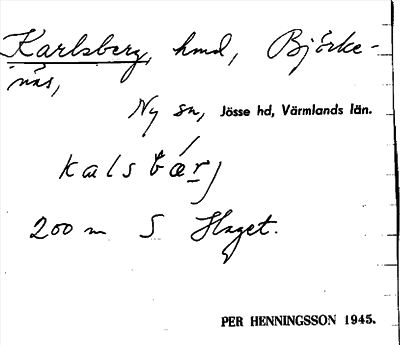 Karlsberg, hmd, Björke-
näs,
Ny sn, Jösse hd, Värmlands län.
kalsbærj
200 m S Haget.
PER HENNINGSSON 1945.